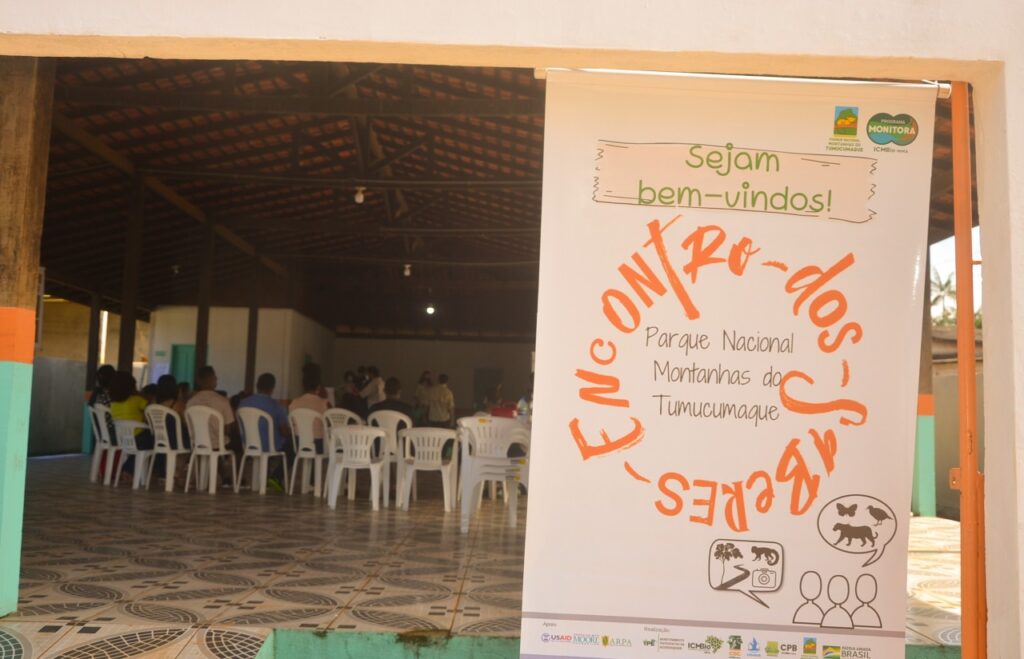 PARQUE NACIONAL
MONTANHAS DO
TUMUCUMAQUE
PROGRAMA
MONITORA
ICMBio
Sejam
bem-vindos!
Encontro-dos-Saberes-
Parque Nacional
Montanhas do
Tumucumaque
Apoio
Realização
USAID
MOORE
ARPA
ipê
ICMBio
CPB
BRASIL